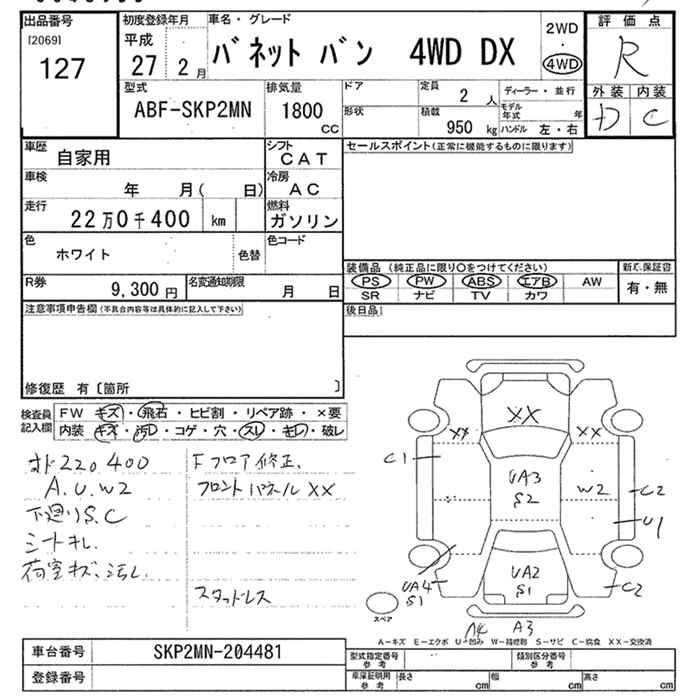 出品番号
[2069]
127
初度登録年月
平成
27年 2月
車名・グレード
バネット バン 4WD DX
2WD
・
4WD
評価点
R
外装 内装
D C
型式
ABF-SKP2MN
排気量
1800
cc
ドア
形状
定員
2人
積載
950 kg
ディーラー・並行
モデル年式 年
ハンドル 左・右
車歴
自家用
シフト
CAT
車検
年 月( 日)
冷房
AC
走行
22万0千400 km
燃料
ガソリン
色
ホワイト
色替
色コード
R券
9,300円
名変通知期限
月 日
セールスポイント(正常に機能するものに限ります)
装備品 (純正品に限り〇をつけてください)
PS PW ABS エアB AW
SR ナビ TV カワ
新車保証書
有・無
注意事項申告欄(不具合内容等は具体的に記入して下さい)
後日品
修復歴 有〔箇所 〕
検査員記入欄
FW キズ・飛石・ヒビ割・リペア跡・×要
内装 キズ・汚レ・コゲ・穴・スレ・キレ・破レ
オド220,400
A.U.W2
下廻りS.C
シートキレ
荷室キズ、汚レ
Fフロア修正
フロントパネルXX
スタッドレス
XX
XX
XX
C1
UA3
S2
W2
C2
U1
UA4
S1
UA2
S1
C2
スペア
A4
A3
A-キズ E-エクボ U-凹み W-補修跡 S-サビ C-腐食 XX-交換済
車台番号
SKP2MN-204481
登録番号
型式指定番号
参考
類別区分番号
参考
車庫証明用
参考
長さ cm
幅 cm
高さ cm